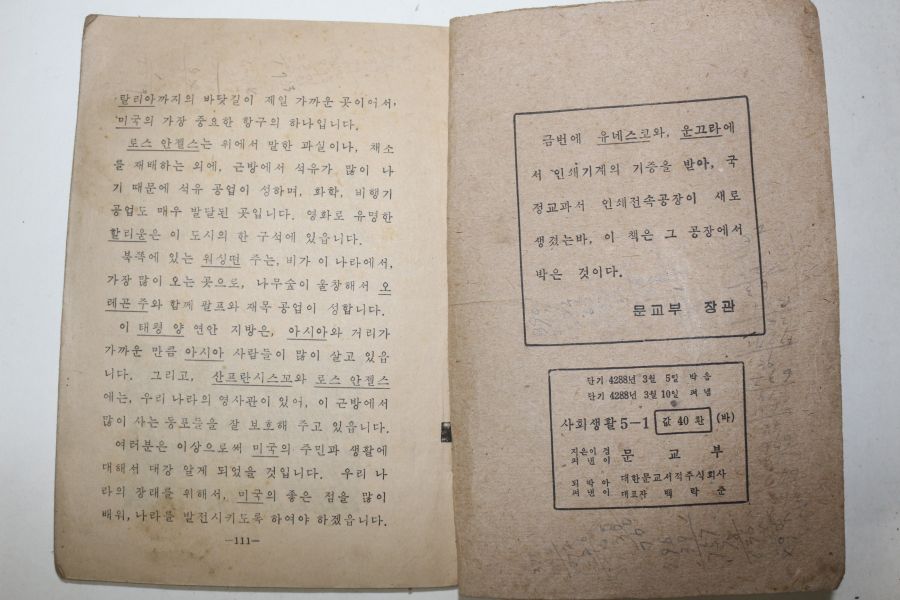 탈리아까지의 바닷길이 제일 가까운 곳이어서,
미국의 가장 중요한 항구의 하나입니다.
로스 안젤스는 위에서 말한 과실이나, 채소
를 재배하는 외에, 근방에서 석유가 많이 나
기 때문에 석유 공업이 성하며, 화학, 비행기
공업도 매우 발달된 곳입니다. 영화로 유명한
할리울은 이 도시의 한 구석에 있읍니다.
북쪽에 있는 워싱떤 주는, 비가 이 나라에서,
가장 많이 오는 곳으로, 나무숲이 울창해서 오
레곤 주와 함께 펄프와 재목 공업이 성합니다.
이 태평 양 연안 지방은, 아시아와 거리가
가까운 만큼 아시아 사람들이 많이 살고 있읍
니다. 그리고, 산프란시스꼬와 로스 안젤스
에는, 우리 나라의 영사관이 있어, 이 근방에서
많이 사는 동포들을 잘 보호해 주고 있읍니다.
여러분은 이상으로써 미국의 주민과 생활에
대해서 대강 알게 되었을 것입니다. 우리 나
라의 장래를 위해서, 미국의 좋은 점을 많이
배워, 나라를 발전시키도록 하여야 하겠읍니다.
—111—
금번에 유네스코와, 운끄라에
서 인쇄기계의 기증을 받아, 국
정교과서 인쇄전속공장이 새로
생겼는바, 이 책은 그 공장에서
박은 것이다.
문교부 장관
단기 4288년 3월 5일 박음
단기 4288년 3월 10일 펴냄
사회생활 5-1 값 40환 (바)
지은이 겸 펴낸이 문교부
되박아 펴낸이 대한문교서적주식회사
대표자 백락준